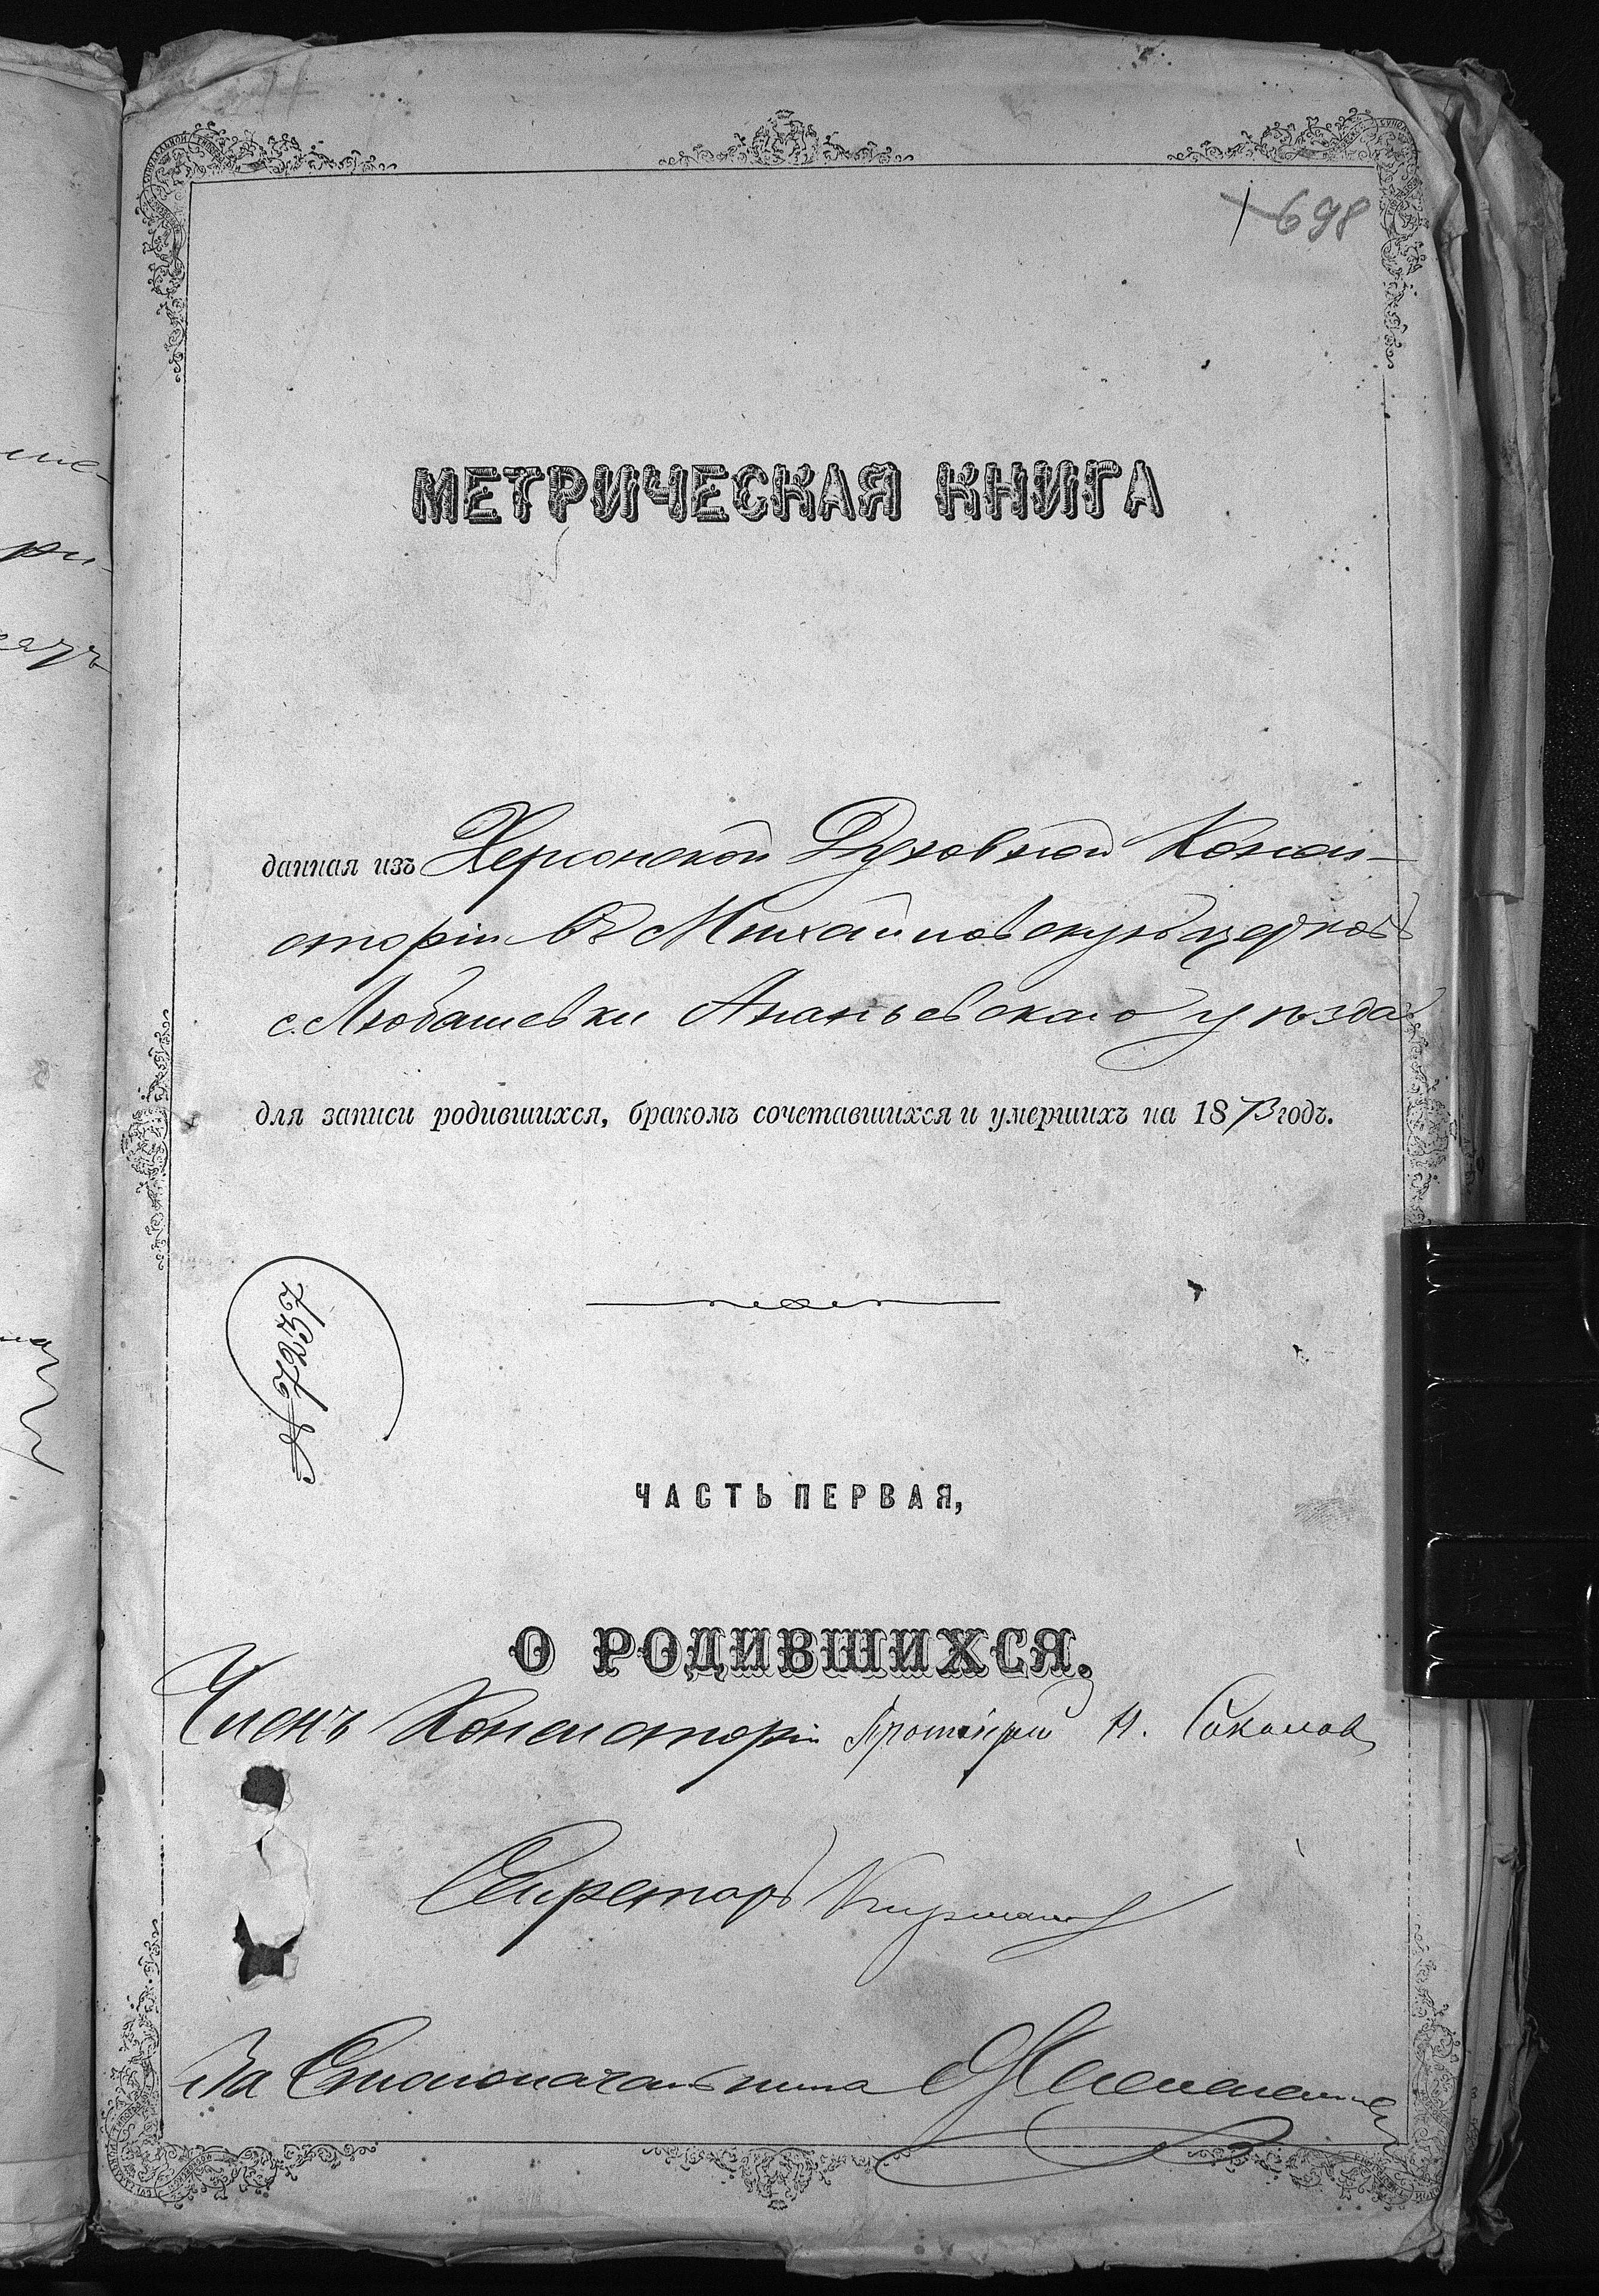 698
МЕТРИЧЕСКАЯ КНИГА
данная изъ Херсонской Духовной Конси-
сторіи въ Михайловскую церковь
с. Любашевки Ананьевскаго уѣзда
для записи родившихся, бракомъ сочетавшихся и умершихъ на 1873 годъ.
№ 7257
ЧАСТЬ ПЕРВАЯ,
О РОДИВШИХСЯ.
Членъ Консисторіи Протоіерей Н. Соколовъ
Секретарь
За Столоначальника